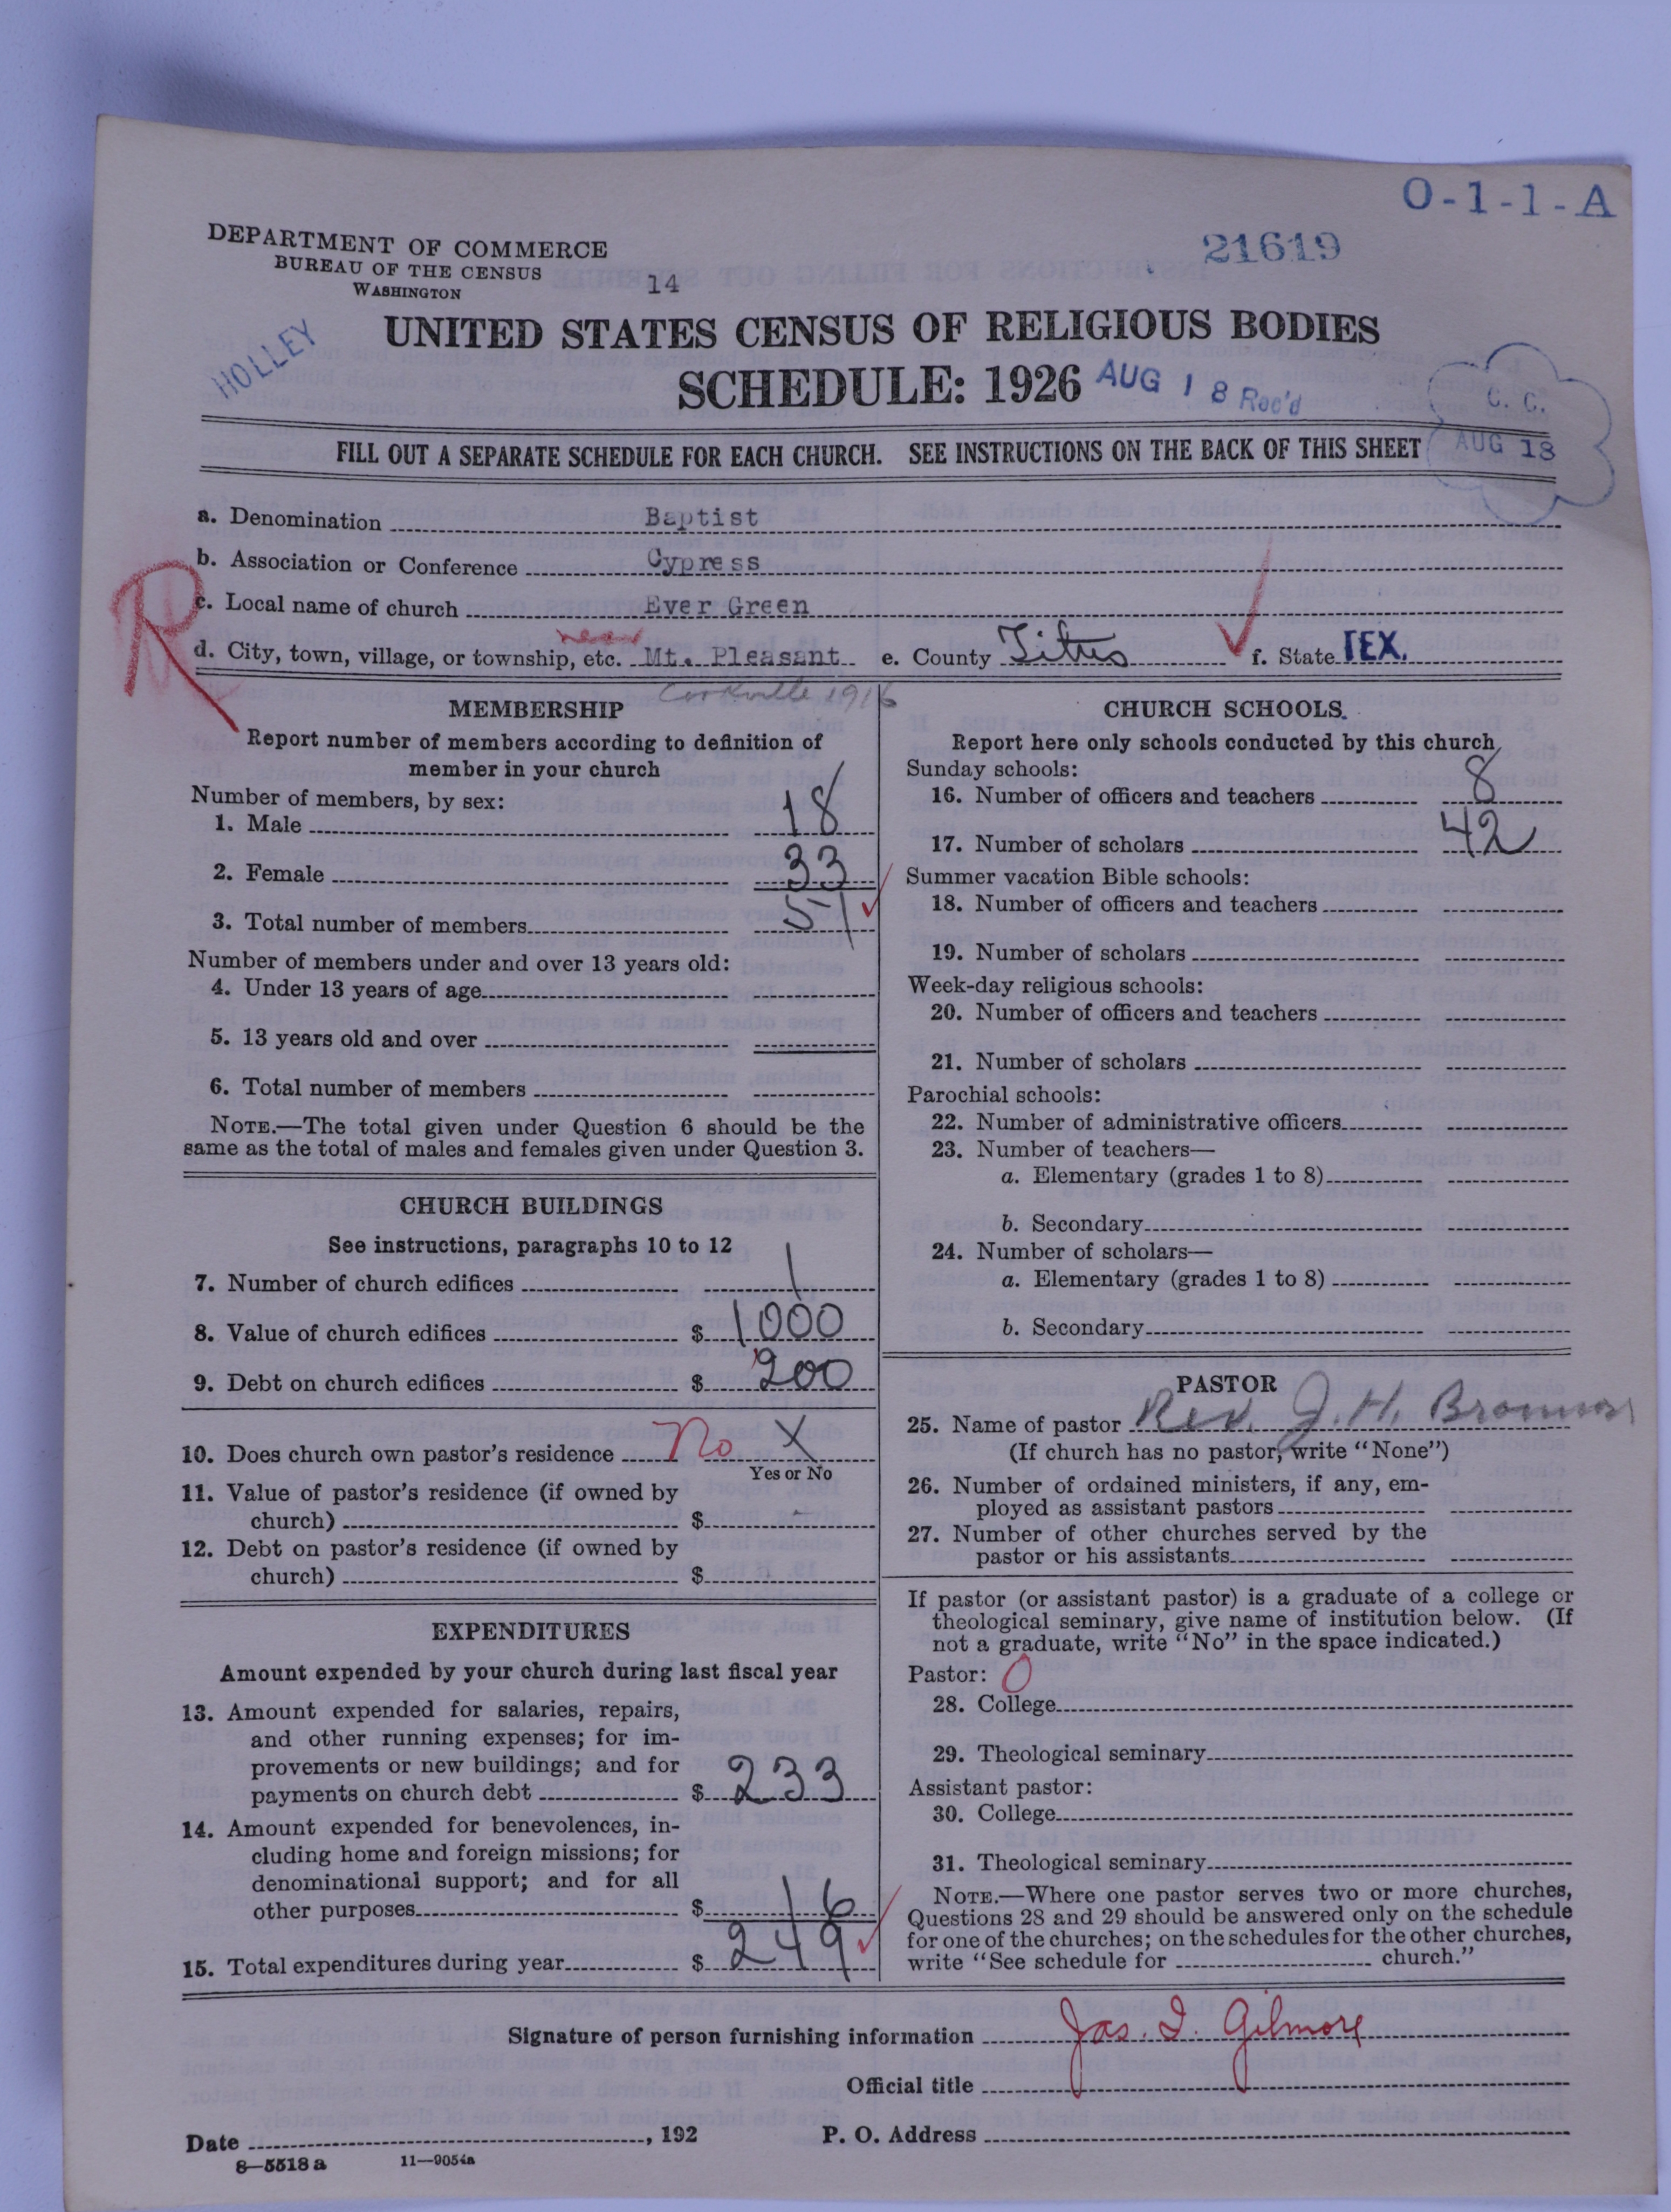 O-1-1-A
21619
DEPARTMENT OF COMMERCE
BUREAU OF THE CENSUS
WASHINGTON
14
HOLLEY
UNITED STATES CENSUS OF RELIGIOUS BODIES
SCHEDULE: 1926
AUG 18 Rec'd
C. C.
AUG 18
FILL OUT A SEPARATE SCHEDULE FOR EACH CHURCH. SEE INSTRUCTIONS ON THE BACK OF THIS SHEET
R
a. Denomination Baptist
b. Association or Conference Cypress
c. Local name of church Ever Green
near
d. City, town, village, or township, etc. Mt. Pleasant e. County Titus f. State TEX.
1916
MEMBERSHIP
Report number of members according to definition of
member in your church
Number of members, by sex:
1. Male 18
2. Female 33
3. Total number of members 51
Number of members under and over 13 years old:
4. Under 13 years of age
5. 13 years old and over
6. Total number of members
NOTE.—The total given under Question 6 should be the
same as the total of males and females given under Question 3.
CHURCH BUILDINGS
See instructions, paragraphs 10 to 12
7. Number of church edifices 1
8. Value of church edifices $ 1000
9. Debt on church edifices $ 200
10. Does church own pastor's residence No X
Yes or No
11. Value of pastor's residence (if owned by
church) $ -
12. Debt on pastor's residence (if owned by
church) $
EXPENDITURES
Amount expended by your church during last fiscal year
13. Amount expended for salaries, repairs,
and other running expenses; for im-
provements or new buildings; and for
payments on church debt $ 233
14. Amount expended for benevolences, in-
cluding home and foreign missions; for
denominational support; and for all
other purposes $ 16
15. Total expenditures during year $ 249
CHURCH SCHOOLS
Report here only schools conducted by this church
Sunday schools:
16. Number of officers and teachers 8
17. Number of scholars 42
Summer vacation Bible schools:
18. Number of officers and teachers
19. Number of scholars
Week-day religious schools:
20. Number of officers and teachers
21. Number of scholars
Parochial schools:
22. Number of administrative officers
23. Number of teachers—
a. Elementary (grades 1 to 8)
b. Secondary
24. Number of scholars—
a. Elementary (grades 1 to 8)
b. Secondary
PASTOR
25. Name of pastor Rev. J. H.
(If church has no pastor, write "None")
26. Number of ordained ministers, if any, em-
ployed as assistant pastors
27. Number of other churches served by the
pastor or his assistants
If pastor (or assistant pastor) is a graduate of a college or
theological seminary, give name of institution below. (If
not a graduate, write "No" in the space indicated.)
Pastor: O
28. College
29. Theological seminary
Assistant pastor:
30. College
31. Theological seminary
NOTE.—Where one pastor serves two or more churches,
Questions 28 and 29 should be answered only on the schedule
for one of the churches; on the schedules for the other churches,
write "See schedule for church."
Signature of person furnishing information Jas. I. Gilmore
Official title
Date , 192 P. O. Address
8—5518 a 11—9054a